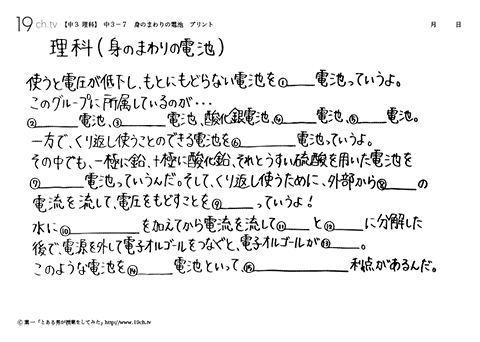 19ch.tv 【中3 理科】 中3-7 身のまわりの電池 プリント 月 日
理科(身のまわりの電池)
使うと電圧が低下し、もとにもどらない電池を①___電池っていうよ。
このグループに所属しているのが・・・
②___電池、③___電池、酸化銀電池、④___電池、⑤___電池。
一方で、くり返し使うことのできる電池を⑥___電池っていうよ。
その中でも、一極に鉛、+極に酸化鉛、それとうすい硫酸を用いた電池を
⑦___電池っていうんだ。そして、くり返し使うために、外部から⑧___の
電流を流して、電圧をもどすことを⑨___っていうよ!
水に⑩___を加えてから電流を流して⑪___と⑫___に分解した
後で、電源を外して電子オルゴールをつなぐと、電子オルゴールが⑬___。
このような電池を⑭___電池といって、⑮___利点があるんだ。
© 葉一「とある男が授業をしてみた」http://www.19ch.tv